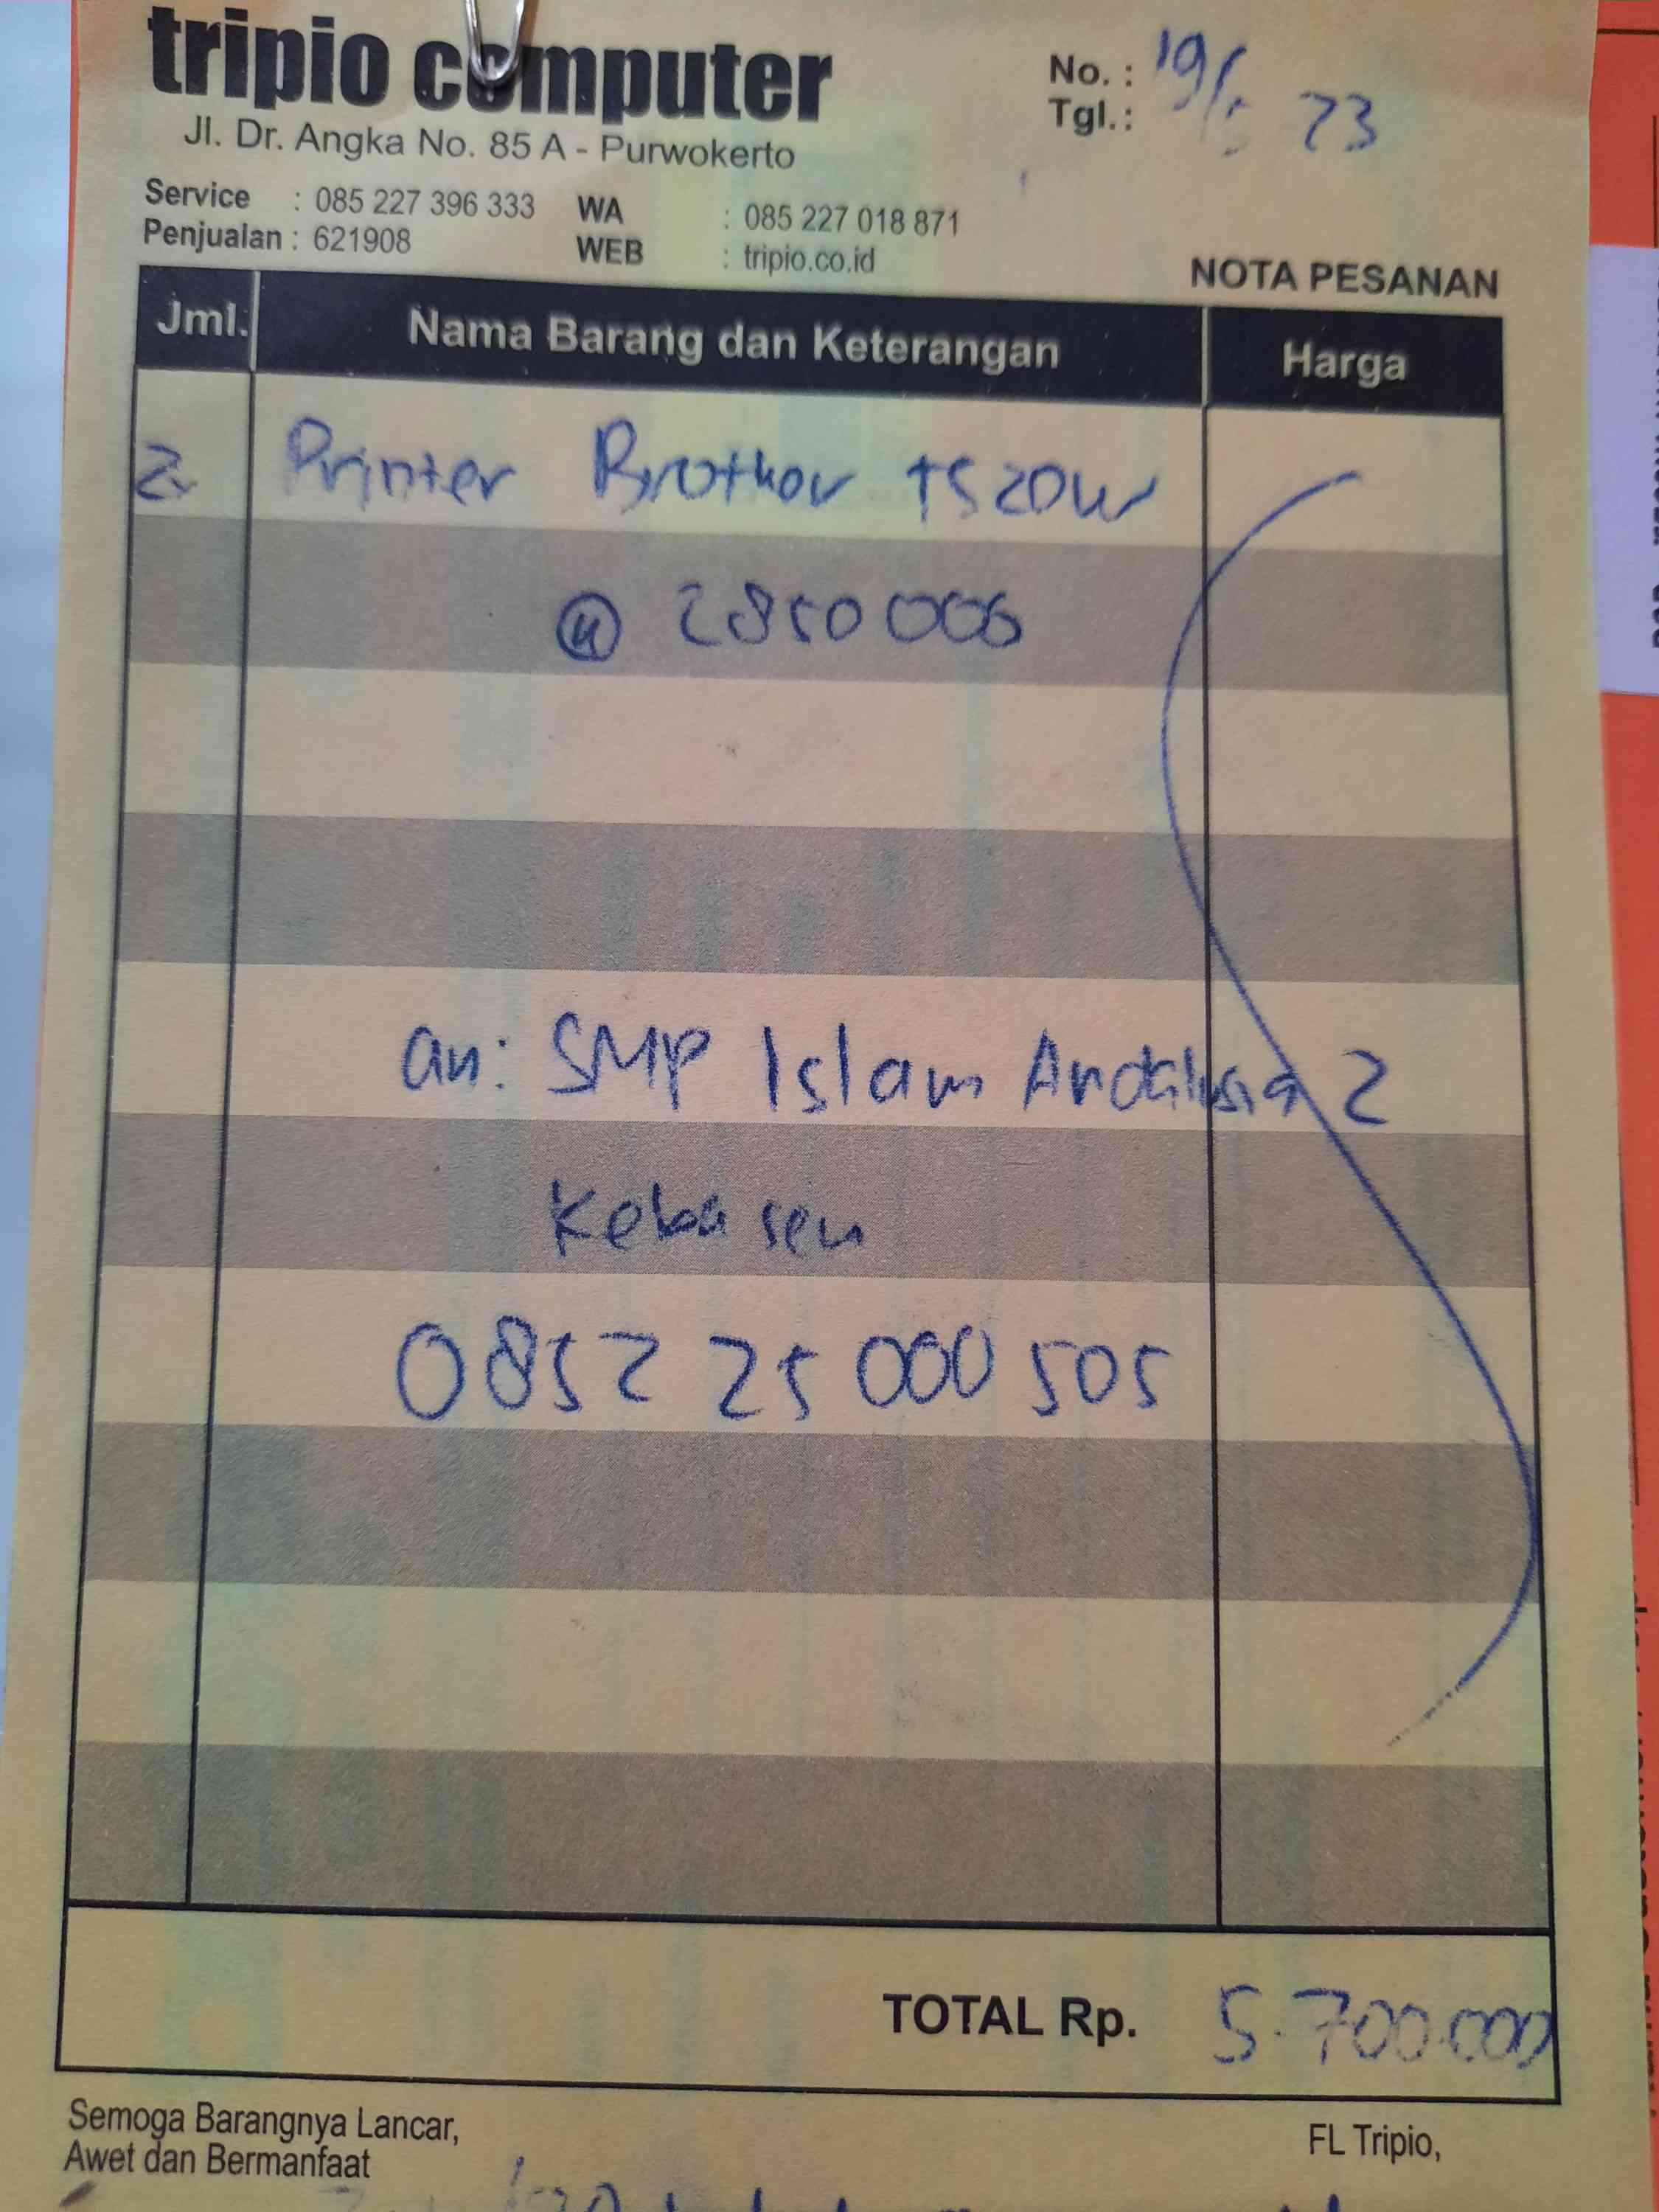 tripio computer
Jl. Dr. Angka No. 85 A - Purwokerto
No. :
Tgl.: 19/5 23
Service : 085 227 396 333 WA : 085 227 018 871
Penjualan : 621908 WEB : tripio.co.id
NOTA PESANAN
Jml. Nama Barang dan Keterangan Harga
2. Printer Brother T520W
@ 2850000
an: SMP Islam Andalusia 2
Kebasen
0852 25 000 505
TOTAL Rp. 5.700.000
Semoga Barangnya Lancar,
Awet dan Bermanfaat
FL Tripio,